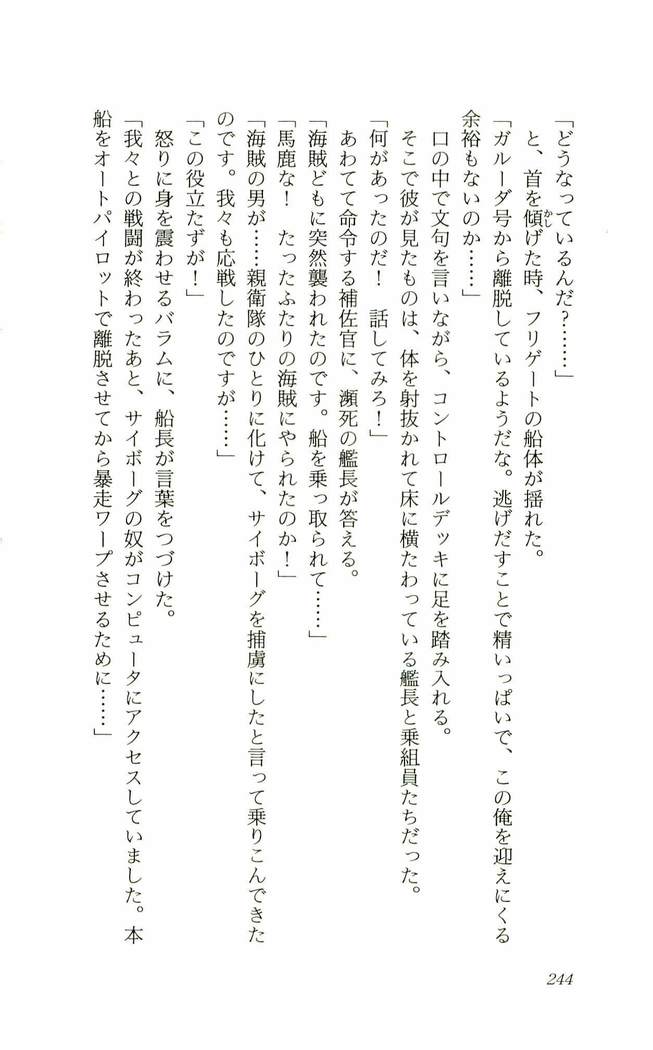 「どうなっているんだ?……」
と、首を傾げた時、フリゲートの船体が揺れた。
かし
「ガルーダ号から離脱しているようだな。逃げだすことで精いっぱいで、この俺を迎えにくる
余裕もないのか……」
口の中で文句を言いながら、コントロールデッキに足を踏み入れる。
そこで彼が見たものは、体を射抜かれて床に横たわっている艦長と乗組員たちだった。
「何があったのだ! 話してみろ!」
あわてて命令する補佐官に、瀕死の艦長が答える。
「海賊どもに突然襲われたのです。船を乗っ取られて……」
「馬鹿な! たったふたりの海賊にやられたのか!」
「海賊の男が……親衛隊のひとりに化けて、サイボーグを捕虜にしたと言って乗りこんできた
のです。我々も応戦したのですが……」
「この役立たずが!」
怒りに身を震わせるバラムに、船長が言葉をつづけた。
「我々との戦闘が終わったあと、サイボーグの奴がコンピュータにアクセスしていました。本
船をオートパイロットで離脱させてから暴走ワープさせるために……」
244